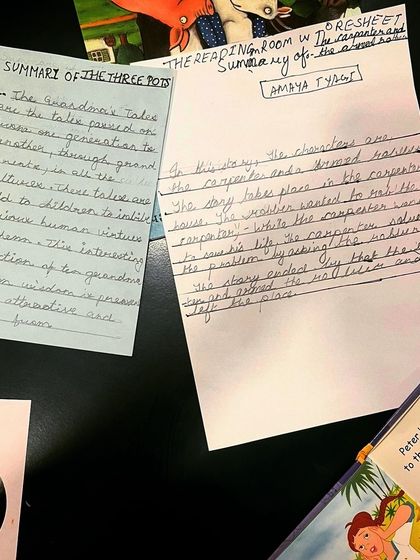 SUMMARI OF THE THREE POTS
The Grandma's Tales
are the tales passed on
one generation to
another, through grand
in all the
These tales are
to children to
human virtues
This interesting
of ten grandma
wisdom is
attractive and
from
THE READING ROOM W ORESHEET
Summary of:- The carpenter and
the armed robber
AMAYA TYAGI
In this story, The characters are
the carpenter and a armed robber
The story takes place in the carpenter
house. The robber wanted to rob the
carpenter. While the carpenter wan
to save his life. The carpenter solve
the problem by asking the robber
The story ended by that the
and armed the
left the place.
Peter
to th